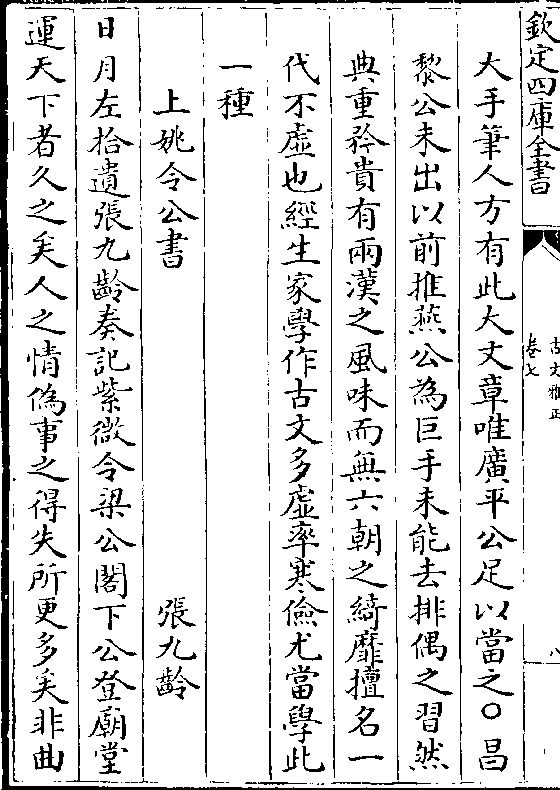 欽定四庫全書
古文雅正
卷七
八
大手筆人方有此大文章唯廣平公足以當之○昌
黎公未出以前推燕公為巨手未能去排偶之習然
典重矜貴有兩漢之風味而無六朝之綺靡擅名一
代不虛也經生家學作古文多虛率寒儉尤當學此
一種
上姚令公書 張九齡
日月左拾遺張九齡奏記紫微令梁公閣下公登廟堂
運天下者久之矣人之情偽事之得失所更多矣非曲